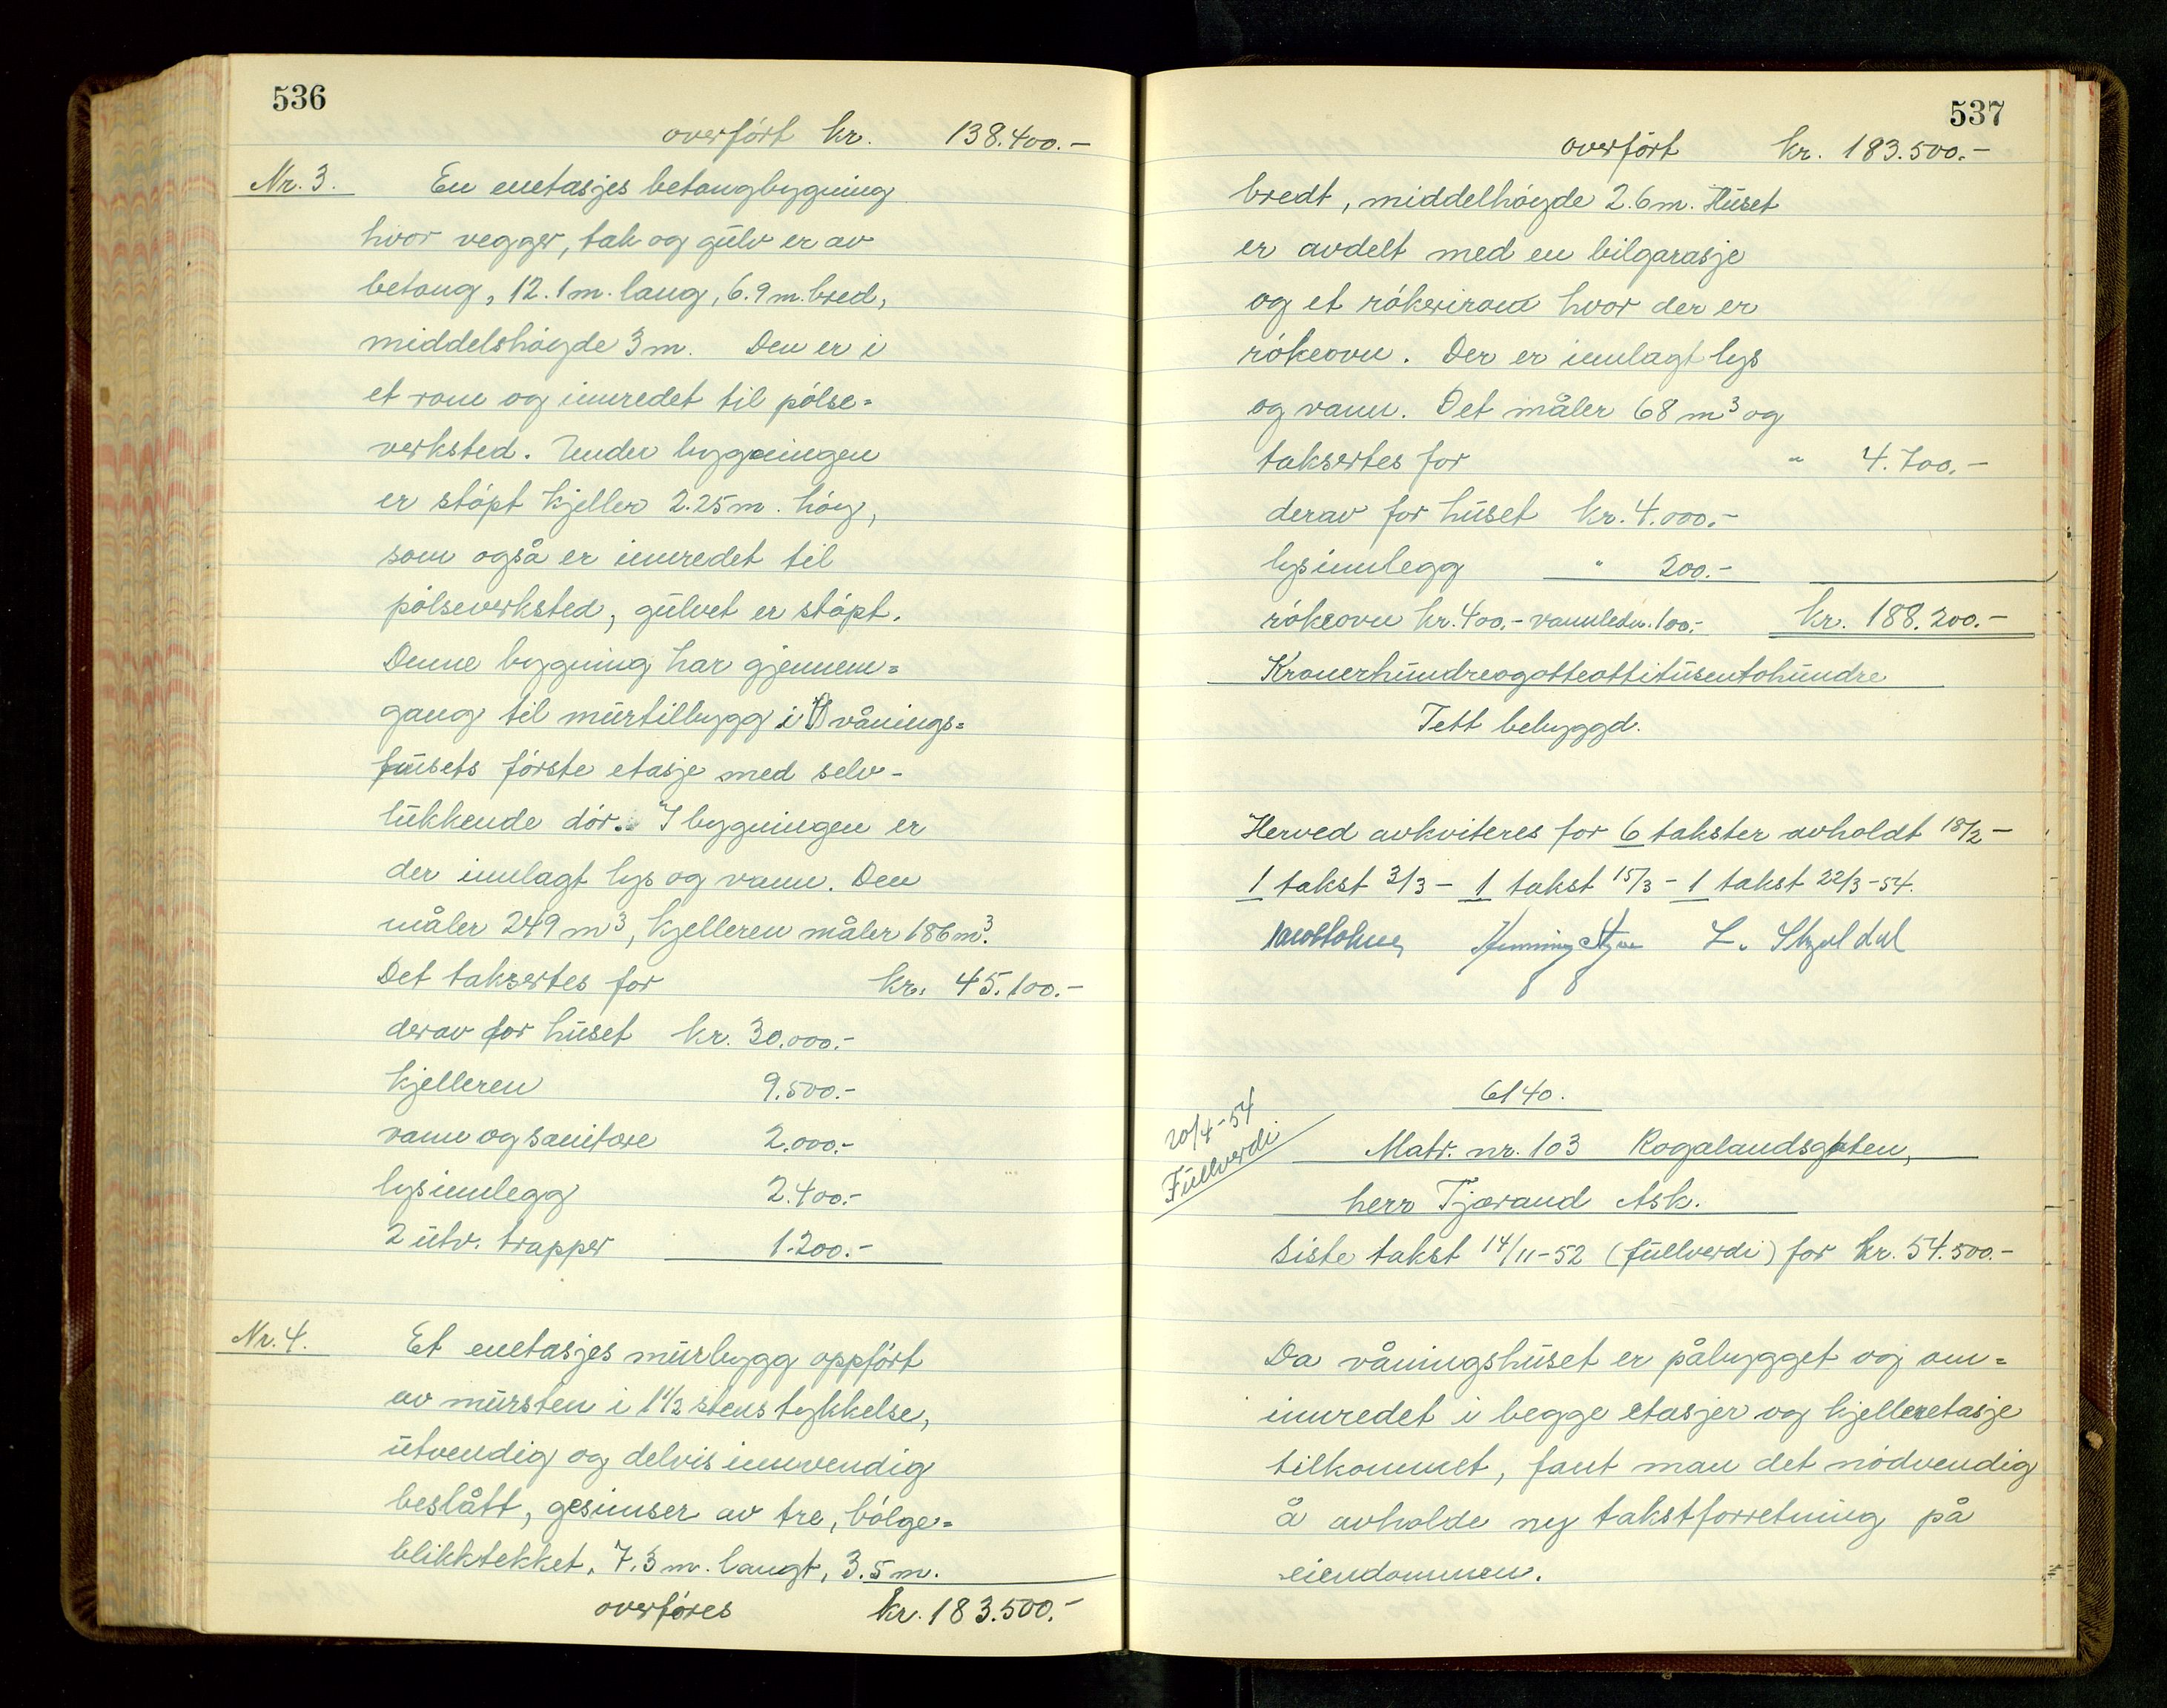 536
overført kr. 138.400.-
Nr. 3. En enetasjes betongbygning
hvor vegger, tak og gulv er av
betong, 12.1 m. lang, 6.9 m. bred,
middelshøyde 3 m. Den er i
et rom og innredet til pølse=
verksted. Under bygningen
er støpt kjeller 2.25 m. høy,
som også er innredet til
pølseverksted, gulvet er støpt.
Denne bygning har gjennem=
gang til murtilbygg i vånings=
husets første etasje med selv-
lukkende dør. I bygningen er
der innlagt lys og vann. Den
måler 249 m³, kjelleren måler 186 m³.
Det taksertes for kr. 45.100.-
derav for huset kr. 30.000.-
kjelleren 9.500.-
vann og sanitære 2.000.-
lysinnlegg 2.400.-
2 utv. trapper 1.200.-
Nr. 4. Et enetasjes murbygg oppført
av mursten i 1 1/2 stens tykkelse,
utvendig og delvis innvendig
beslått, gesimser av tre, bølge=
blikktekket, 7.3 m. langt, 3.5 m.
overføres kr. 183.500.-
537
overført kr. 183.500.-
bredt, middelhøyde 2.6 m. Huset
er avdelt med en bilgarasje
og et røkerirom hvor der er
røkeovn. Der er innlagt lys
og vann. Det måler 68 m³ og
taksertes for " 4.700.-
derav for huset kr. 4.000.-
lysinnlegg " 200.-
røkeovn kr. 400.- vannledn. 100.- kr. 188.200.-
Kronerhundreogotteottitusentohundre
Tett bebyggd.
Herved avkviteres for 6 takster avholdt 18/2 -
1 takst 3/3 - 1 takst 15/3 - 1 takst 22/3-54.
Henning L.
6140.
20/4-54
Fullverdi
Matr. nr. 103 Rogalandsgaten,
herr Tjærand Ask.
Siste takst 14/11-52 (fullverdi) for kr. 54.500.-
Da våningshuset er påbygget og om=
innredet i begge etasjer og kjelleretasje
tilkommet, fant man det nødvendig
å avholde ny takstforretning på
eiendommen.